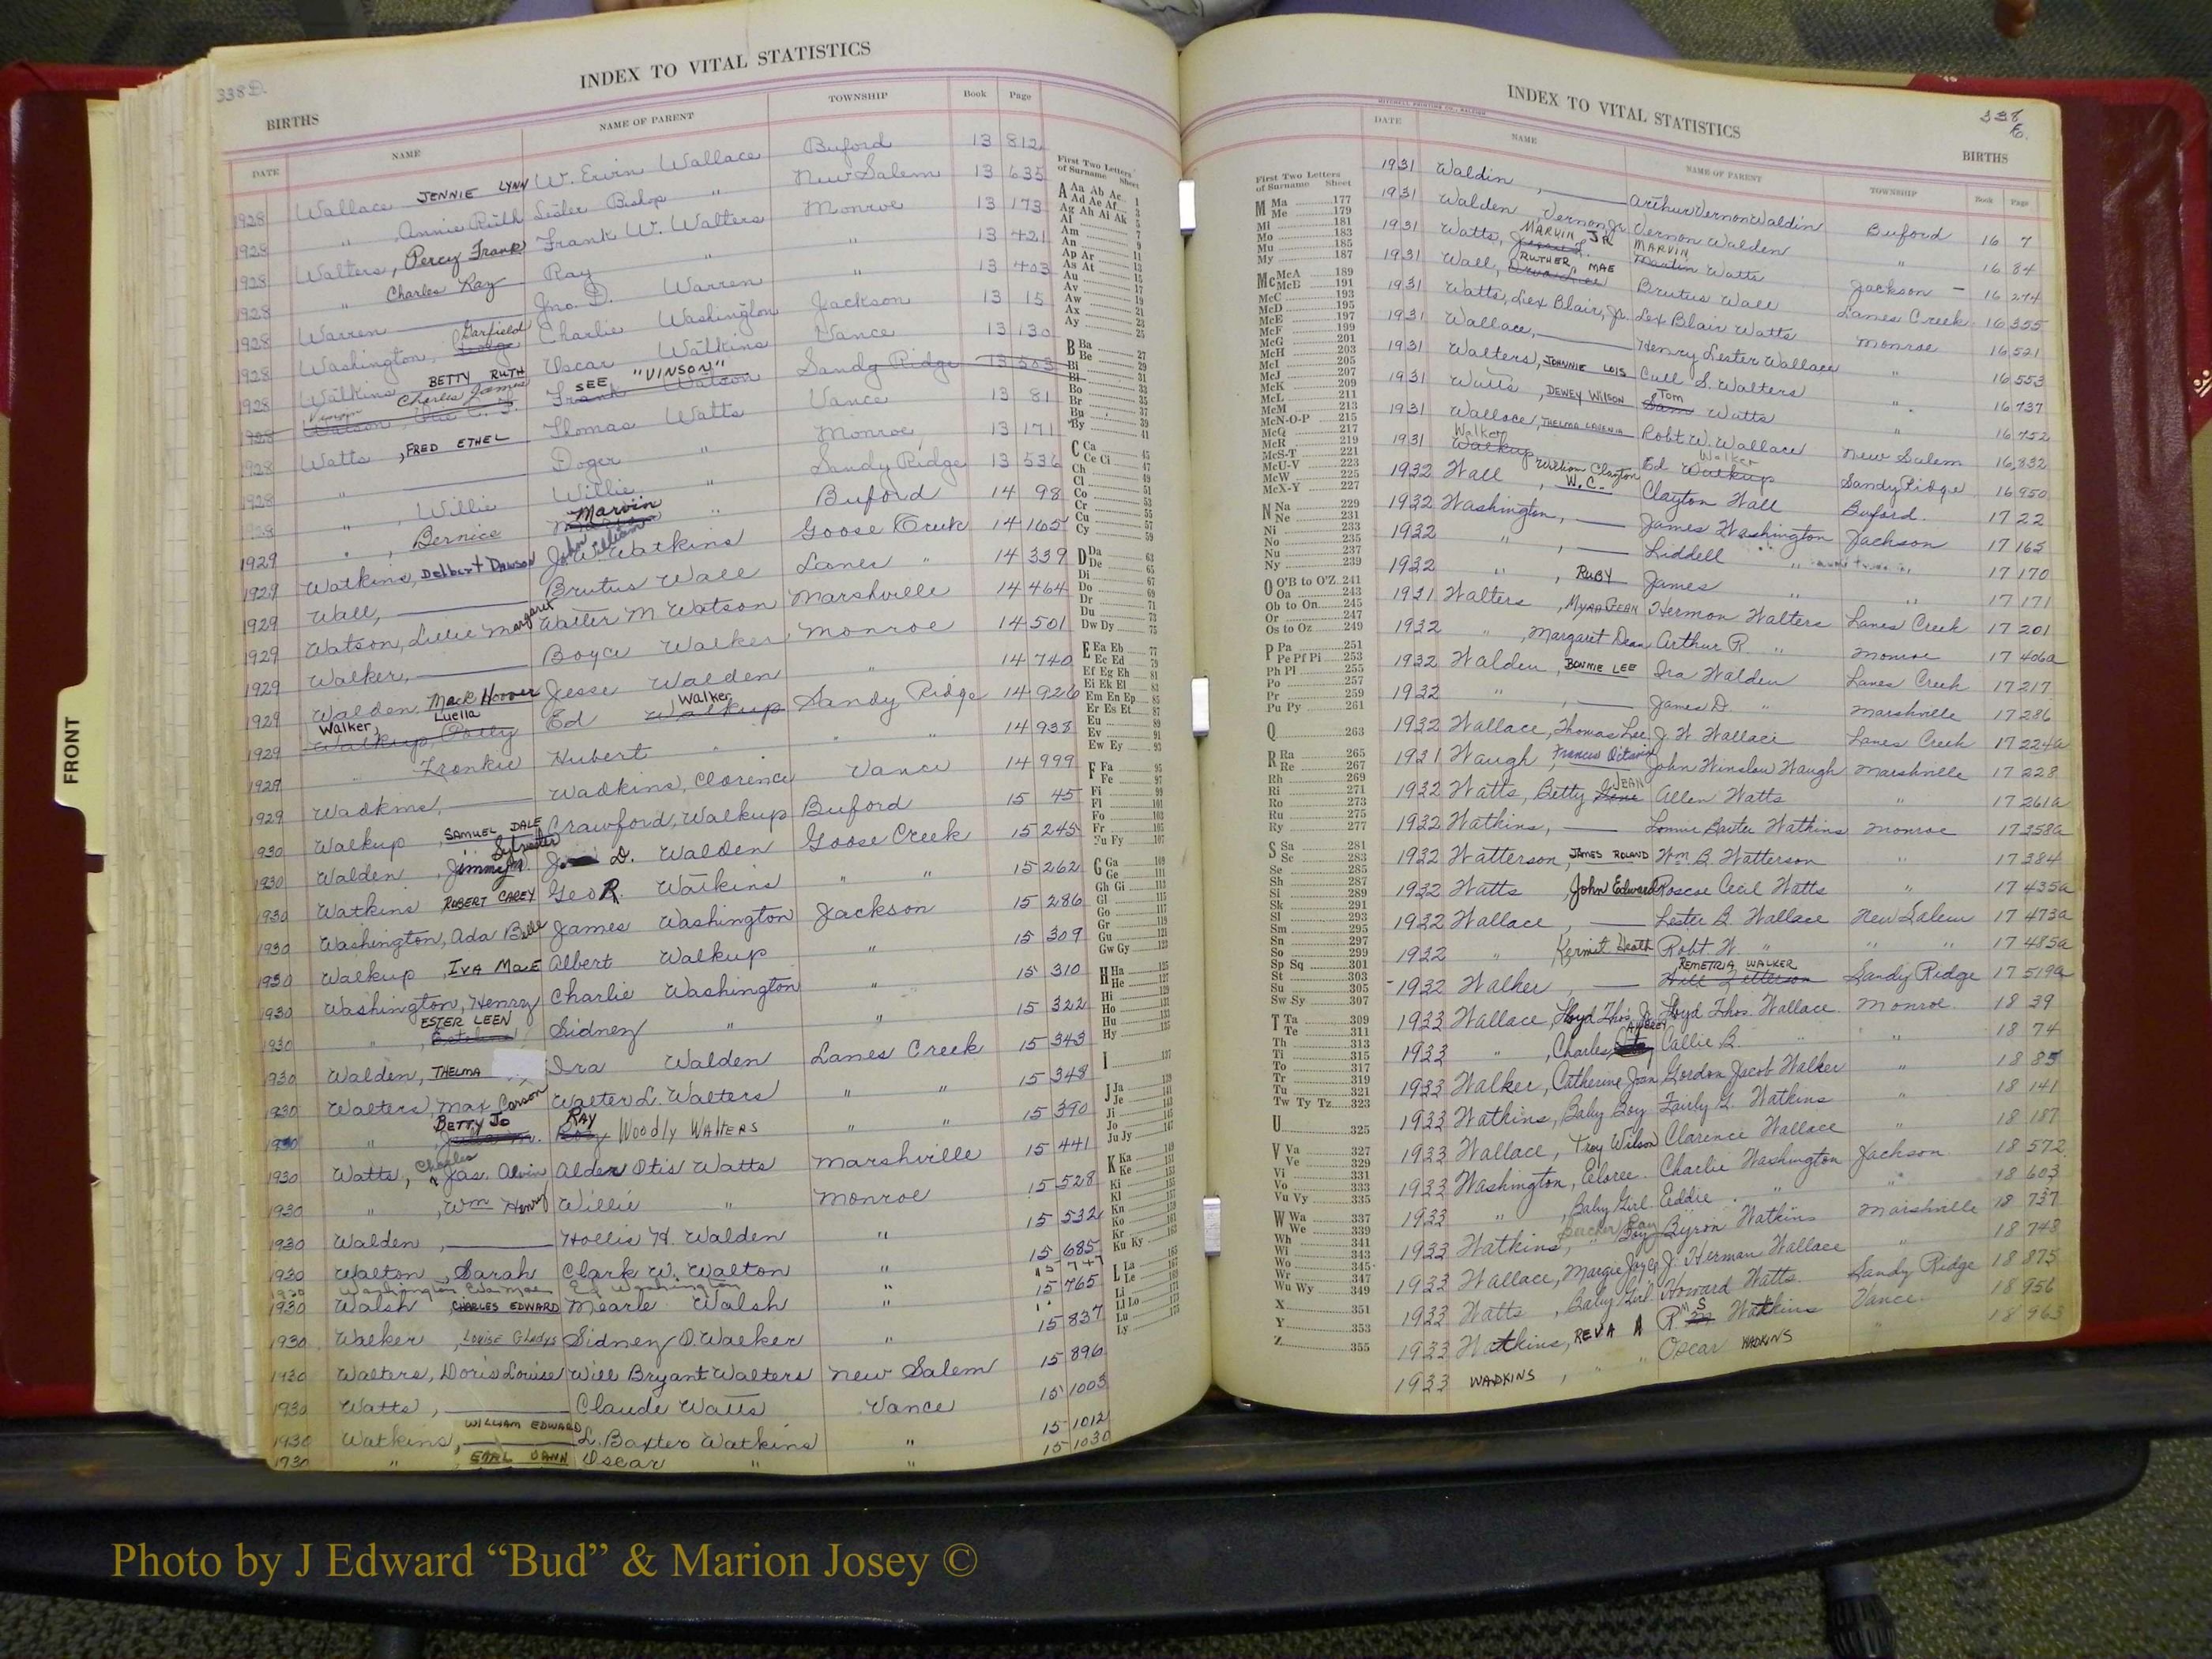 338D.
INDEX TO VITAL STATISTICS
BIRTHS
DATE NAME NAME OF PARENT TOWNSHIP Book Page
1928 Wallace JENNIE LYNN W. Ervin Wallace Buford 13 812
1928 " , Annie Ruth Lester Bishop " New Salem 13 635
1928 Walters, Percy Frank Frank W. Walters Monroe 13 173
1928 " Charles Ray Ray " " 13 421
1928 Warren Jno. D. Warren " 13 403
1928 Washington, Garfield Charlie Washington Jackson 13 15
1928 Watkins BETTY RUTH Oscar Watkins Vance 13 130
1928 Vinson Charles James Watson Frank Watson SEE "VINSON" Sandy Ridge 13 503
1928 Watts , FRED ETHEL Thomas Watts Vance 13 81
1928 " Doger " Monroe 13 171
1928 " , Willie Willie " Sandy Ridge 13 536
1929 " , Bernice Marvin " Buford 14 98
1929 Watkins, Delbert Dawson John William Jno. W. Watkins Goose Creek 14 165
1929 Wall, Brutus Wall Lanes " 14 339
1929 Watson, Lillie Margaret Walter M Watson Marshville 14 464
1929 Walker, Boyce Walker Monroe 14 501
1929 Walden, Mack Hoover Jesse Walden " 14 740
1929 Walker, Luella Walkup, Polly Ed Walker Walkup Sandy Ridge 14 926
1929 " Frankie Hubert " " " 14 938
1929 Wadkins, Wadkins, Clarence Vance 14 999
1930 Walkup , SAMUEL DALE Crawford, Walkup Buford 15 45
1930 Walden , Jimmy Sylvester D. Walden Goose Creek 15 245
1930 Watkins ROBERT CAREY Geo R. Watkins " " 15 262
1930 Washington, Ada Belle James Washington Jackson 15 286
1930 Walkup , IVA MAE Albert Walkup " 15 309
1930 Washington, Henry Charlie Washington " 15 310
1930 " , ESTER LEEN Sidney " " 15 322
1930 Walden, THELMA Ira Walden Lanes Creek 15 343
1930 Walters, Max Carson Walter L. Walters " " 15 348
1930 " , BETTY JO RAY WOODLY WALTERS " " 15 390
1930 Watts, Charles Jas. Alvin Alder Otis Watts Marshville 15 441
1930 " , Wm Henry Willie " Monroe 15 528
1930 Walden , Hollis H. Walden " 15 532
1930 Walton , Sarah Clark W. Walton " 15 685
1930 Washington Ed Washington " 15 747
1930 Walsh , CHARLES EDWARD Mearle Walsh " 15 765
1930 Walker , LOUISE GLADYS Sidney D. Walker " 15 837
1930 Walters, Doris Louise Will Bryant Walters New Salem 15 896
1930 Watts , Claude Watts Vance 15 1003
1930 Watkins, WILLIAM EDWARD L. Baxter Watkins " 15 1012
1930 " EARL Oscar " " 15 1030
First Two Letters
of Surname Sheet
A Aa Ab Ac 1
Ad Ae Af 3
Ag Ah Ai Ak 5
Al 7
Am 9
An 11
Ap Ar 13
As At 15
Au 17
Av 19
Aw 21
Ax 23
Ay 25
B Ba 27
Be 29
Bi 31
Bl 33
Bo 35
Br 37
Bu 39
By 41
C Ca 45
Ce Ci 47
Ch 49
Cl 51
Co 53
Cr 55
Cu 57
Cy 59
D Da 63
De 65
Di 67
Do 69
Dr 71
Du 73
Dw Dy 75
E Ea Eb 77
Ec Ed 79
Ef Eg Eh 81
Ei Ek El 83
Em En Ep 85
Er Es Et 87
Eu 89
Ev 91
Ew Ey 93
F Fa 95
Fe 97
Fi 99
Fl 101
Fo 103
Fr 105
Fu Fy 107
G Ga 109
Ge 111
Gh Gi 113
Gl 115
Go 117
Gr 119
Gu 121
Gw Gy 123
H Ha 125
He 127
Hi 129
Ho 131
Hu 133
Hy 135
I 137
J Ja 139
Je 141
Ji 143
Jo 145
Ju Jy 147
K Ka 149
Ke 151
Ki 153
Kl 155
Kn 157
Ko 159
Kr 161
Ku Ky 163
L La 165
Le 167
Li 169
Ll Lo 171
Lu 173
Ly 175
FRONT
MITCHELL PRINTING CO., RALEIGH
INDEX TO VITAL STATISTICS
338 E.
BIRTHS
DATE NAME NAME OF PARENT TOWNSHIP Book Page
First Two Letters
of Surname Sheet
M Ma 177
Me 179
Mi 181
Mo 183
Mu 185
My 187
Mc McA 189
McB 191
McC 193
McD 195
McE 197
McF 199
McG 201
McH 203
McI 205
McJ 207
McK 209
McL 211
McM 213
McN-O-P 215
McQ 217
McR 219
McS-T 221
McU-V 223
McW 225
McX-Y 227
N Na 229
Ne 231
Ni 233
No 235
Nu 237
Ny 239
O O'B to O'Z 241
Oa 243
Ob to On 245
Or 247
Os to Oz 249
P Pa 251
Pe Pf Pi 253
Ph Pl 255
Po 257
Pr 259
Pu Py 261
Q 263
R Ra 265
Re 267
Rh 269
Ri 271
Ro 273
Ru 275
Ry 277
S Sa 281
Sc 283
Se 285
Sh 287
Si 289
Sk 291
Sl 293
Sm 295
Sn 297
So 299
Sp Sq 301
St 303
Su 305
Sw Sy 307
T Ta 309
Te 311
Th 313
Ti 315
To 317
Tr 319
Tu 321
Tw Ty Tz 323
U 325
V Va 327
Ve 329
Vi 331
Vo 333
Vu Vy 335
W Wa 337
We 339
Wh 341
Wi 343
Wo 345
Wr 347
Wu Wy 349
X 351
Y 353
Z 355
1931 Waldin , Arthur Vernon Waldin Buford 16 7
1931 Walden , Vernon, Jr. Vernon Walden " 16 84
1931 Watts, MARVIN JR MARVIN Martin Watts Jackson 16 274
1931 Wall, RUTHER MAE Brutus Wall Lanes Creek 16 355
1931 Watts, Lex Blair, Jr. Lex Blair Watts Monroe 16 521
1931 Wallace, Henry Lester Wallace " 16 553
1931 Walters, JOHNNIE LOIS Cull S. Walters " 16 737
1931 Watts , DEWEY WILSON Tom Sam Watts " 16 752
1931 Wallace, THELMA Robt W. Wallace New Salem 16 832
1931 Walker Walkup Ed Walker Walkup Sandy Ridge 16 950
1932 Wall , William Clayton W. C. Clayton Wall Buford 17 22
1932 Washington, James Washington Jackson 17 165
1932 " , Liddell " " 17 170
1932 " , RUBY James " " 17 171
1931 Walters , MYRA JEAN Hermon Walters Lanes Creek 17 201
1932 " , Margaret Dean Arthur R. " Monroe 17 406a
1932 Walden , BONNIE LEE Ira Walden Lanes Creek 17 217
1932 " , James D. " Marshville 17 286
1932 Wallace, Thomas Lee J. W. Wallace Lanes Creek 17 224a
1931 Waugh Francis John Winslow Waugh Marshville 17 228
1932 Watts, Betty JEAN Gene Allen Watts " 17 261a
1932 Watkins, Lonnie Baxter Watkins Monroe 17 358a
1932 Watterson, JAMES ROLAND Wm B. Watterson " 17 384
1932 Watts , John Edward Roscoe Cecil Watts " 17 435a
1932 Wallace , Lester B. Wallace New Salem 17 473a
1932 " Kermit Heath Robt. W. " " " 17 485a
1932 Walker , REMETRIA WALKER Sandy Ridge 17 519a
1933 Wallace, Floyd Thos. Jr. Floyd Thos. Wallace Monroe 18 39
1933 " , Charles AUBREY Callie B. " " 18 74
1933 Walker, Catherine Joan Gordon Jacob Walker " 18 85
1933 Watkins, Baby Boy Fairly G. Watkins " 18 141
1933 Wallace, Troy Wilson Clarence Wallace " 18 187
1933 Washington, Eloree Charlie Washington Jackson 18 572
1933 " , Baby Girl Eddie " " 18 603
1933 Watkins, " Boy Ray Byron Watkins Marshville 18 737
1933 Wallace, Margie Joyce J. Herman Wallace " 18 748
1933 Watts , Baby Girl Howard Watts Sandy Ridge 18 875
1933 Watkins, REVA A R M S Watkins Vance 18 956
1933 WADKINS , " " Oscar WADKINS " 18 963
Photo by J Edward “Bud” & Marion Josey ©